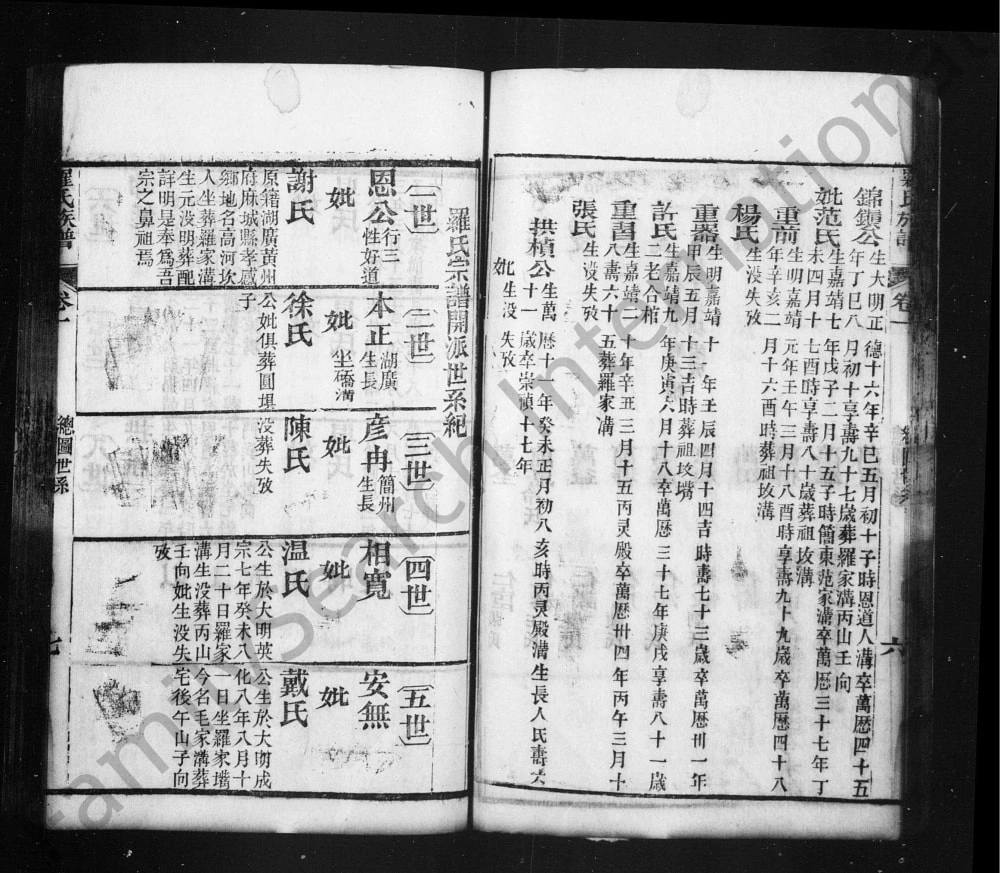 錦鏓公生大明正德十六年辛巳五月初十子時恩道人溝卒萬曆四十五
年丁巳八月初十享壽九十七歲葬羅家溝丙山壬向
妣范氏生嘉靖七年戊子二月十五子時簡東范家溝卒萬曆三十七年丁
未四月十七酉時享壽八十歲葬祖坟溝
重前生明嘉靖元年壬午三月十八酉時享壽九十九歲卒萬曆四十八
年辛亥二月十六酉時葬祖坟溝
楊氏生没失攷
重器生明嘉靖十一年壬辰四月十四吉時壽七十三歲卒萬曆卅一年
甲辰五月十三吉時葬祖坟嘴
許氏生嘉靖九年庚寅六月十八卒萬曆三十七年庚戌享壽八十一歲
二老合棺
重昌生嘉靖二十年辛丑三月十五丙灵殿卒萬曆卅四年丙午三月十
八壽六十五葬羅家溝
張氏生没失攷
拱楨公生萬曆十一年癸未正月初八亥時丙灵殿溝生長人氏壽六
十一歲卒崇禎十七年
妣生没失攷
羅氏族譜
卷一
六
羅氏宗譜開派世系紀
一世
恩公行三性好道
妣
謝氏
原籍湖廣黃州
府麻城縣孝感
鄉地名高河坎
人坐葬羅家溝
生元没明葬配
詳明是奉為吾
宗之鼻祖焉
二世
本正湖廣生長
妣坐礄溝
徐氏
公妣俱葬圓垻
子
三世
彦冉簡州生長
妣
陳氏
没葬失攷
四世
相寬
妣
温氏
公生於大明英
宗七年癸未八
月二十日羅家
溝生没葬丙山
壬向妣生没失
攷
五世
安無
妣
戴氏
公生於大明成
化八年八月十
一日坐羅家壪
今名毛家溝葬
宅後午山子向
羅氏族譜
卷一
總圖世系
七